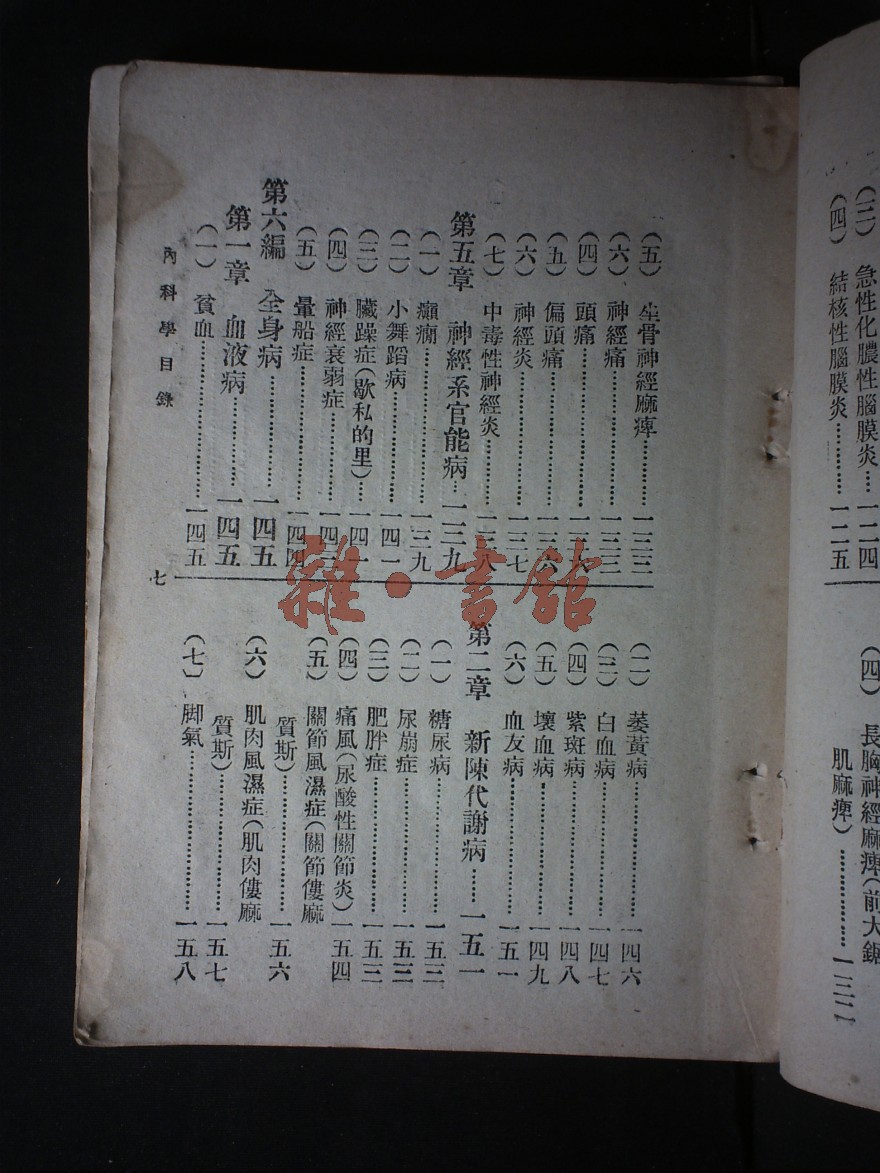 (三) 急性化膿性腦膜炎…一二四
(四) 結核性腦膜炎…………一二五
(四) 長胸神經麻痺(前大鋸
肌麻痺)………………一三二
(五) 坐骨神經麻痺…………一三三
(六) 神經痛…………………一三三
(四) 頭痛……………………一三
(五) 偏頭痛…………………一三六
(六) 神經炎…………………一三七
(七) 中毒性神經炎…………一三八
第五章 神經系官能病…一三九
(一) 癲癇……………………一三九
(二) 小舞蹈病………………一四一
(三) 臟躁症(歇私的里)……一四
(四) 神經衰弱症……………一四
(五) 暈船症…………………一四四
第六編 全身病……………一四五
第一章 血液病……………一四五
(一) 貧血……………………一四五
(二) 萎黃病…………………一四六
(三) 白血病…………………一四七
(四) 紫斑病…………………一四八
(五) 壞血病…………………一四九
(六) 血友病…………………一五一
第二章 新陳代謝病……一五一
(一) 糖尿病…………………一五三
(二) 尿崩症…………………一五三
(三) 肥胖症…………………一五三
(四) 痛風(尿酸性關節炎)…一五四
(五) 關節風濕症(關節僂麻
質斯)…………………一五六
(六) 肌肉風濕症(肌肉僂麻
質斯)…………………一五七
(七) 脚氣……………………一五八
內科學目錄
七
雜·書館